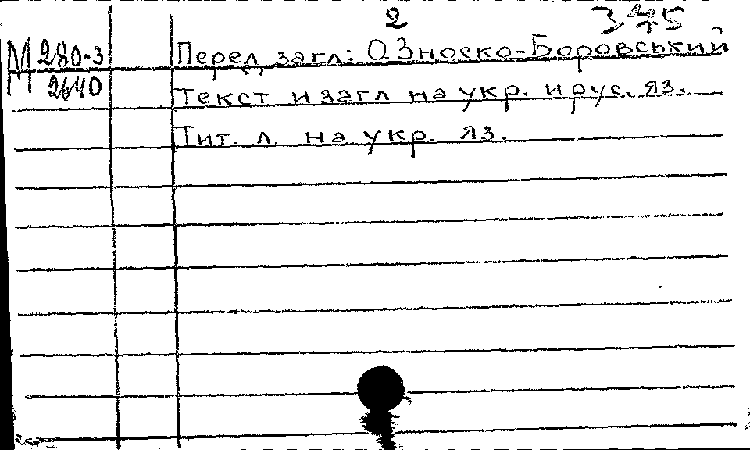 2
М 280-3
2640
Перед загл: О Зноско-Боровський
Текст и загл на укр. и рус. яз.
Тит. л. на укр. яз.